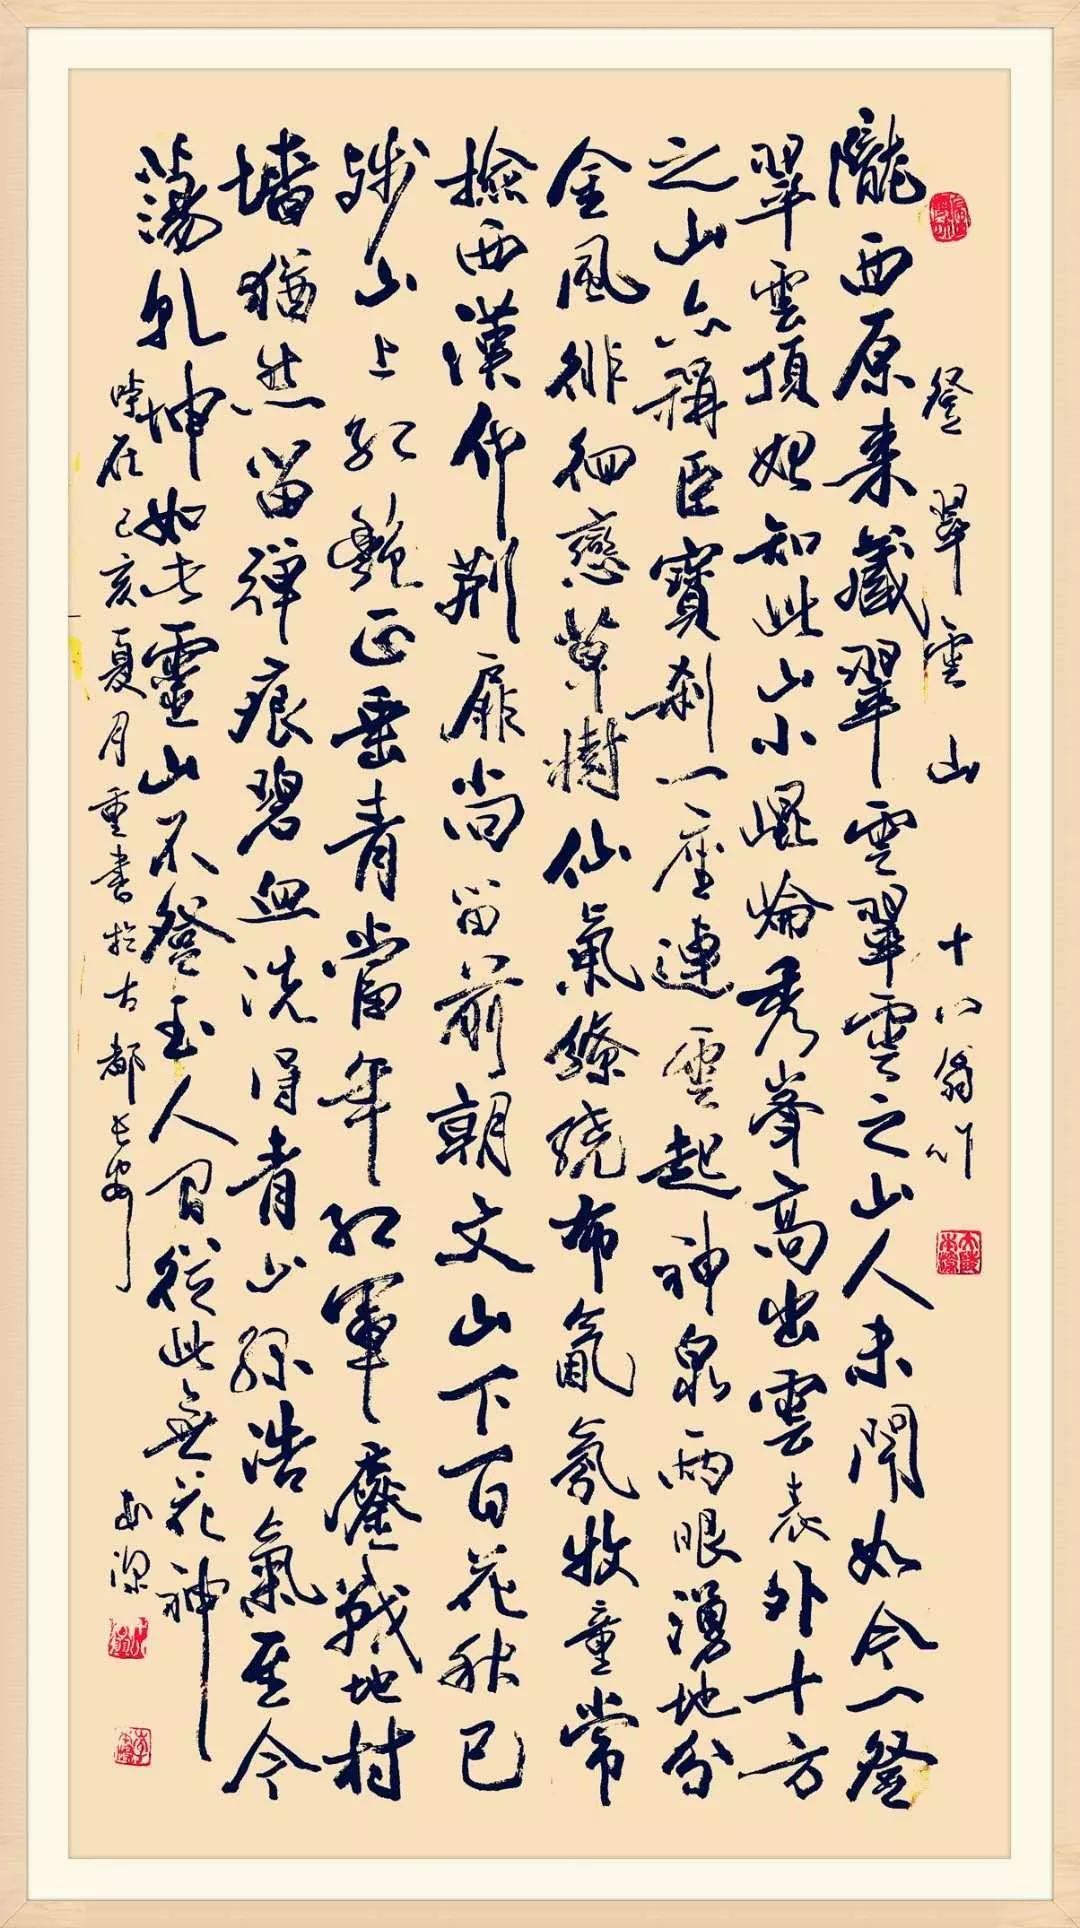 登翠雲山 十八翁
隴西原來藏翠雲翠雲之山人未聞如今一登
翠雲頂始知此山小崐崘秀峯高出雲表外十方
之山亦稱臣寶刹一座連雲起神泉兩眼湧地分
金風徘徊戀草樹仙氣繚繞布氤氳牧童常
撿西漢荆扉尚留前朝文山下百花秋已
殘山上艷正垂青當年红軍鏖戰地村
墻猶然留彈痕碧血洗得青山綠浩氣至今
蕩乾坤如此靈山不登至人间從此無花神
時在己亥夏月重書於古都長安